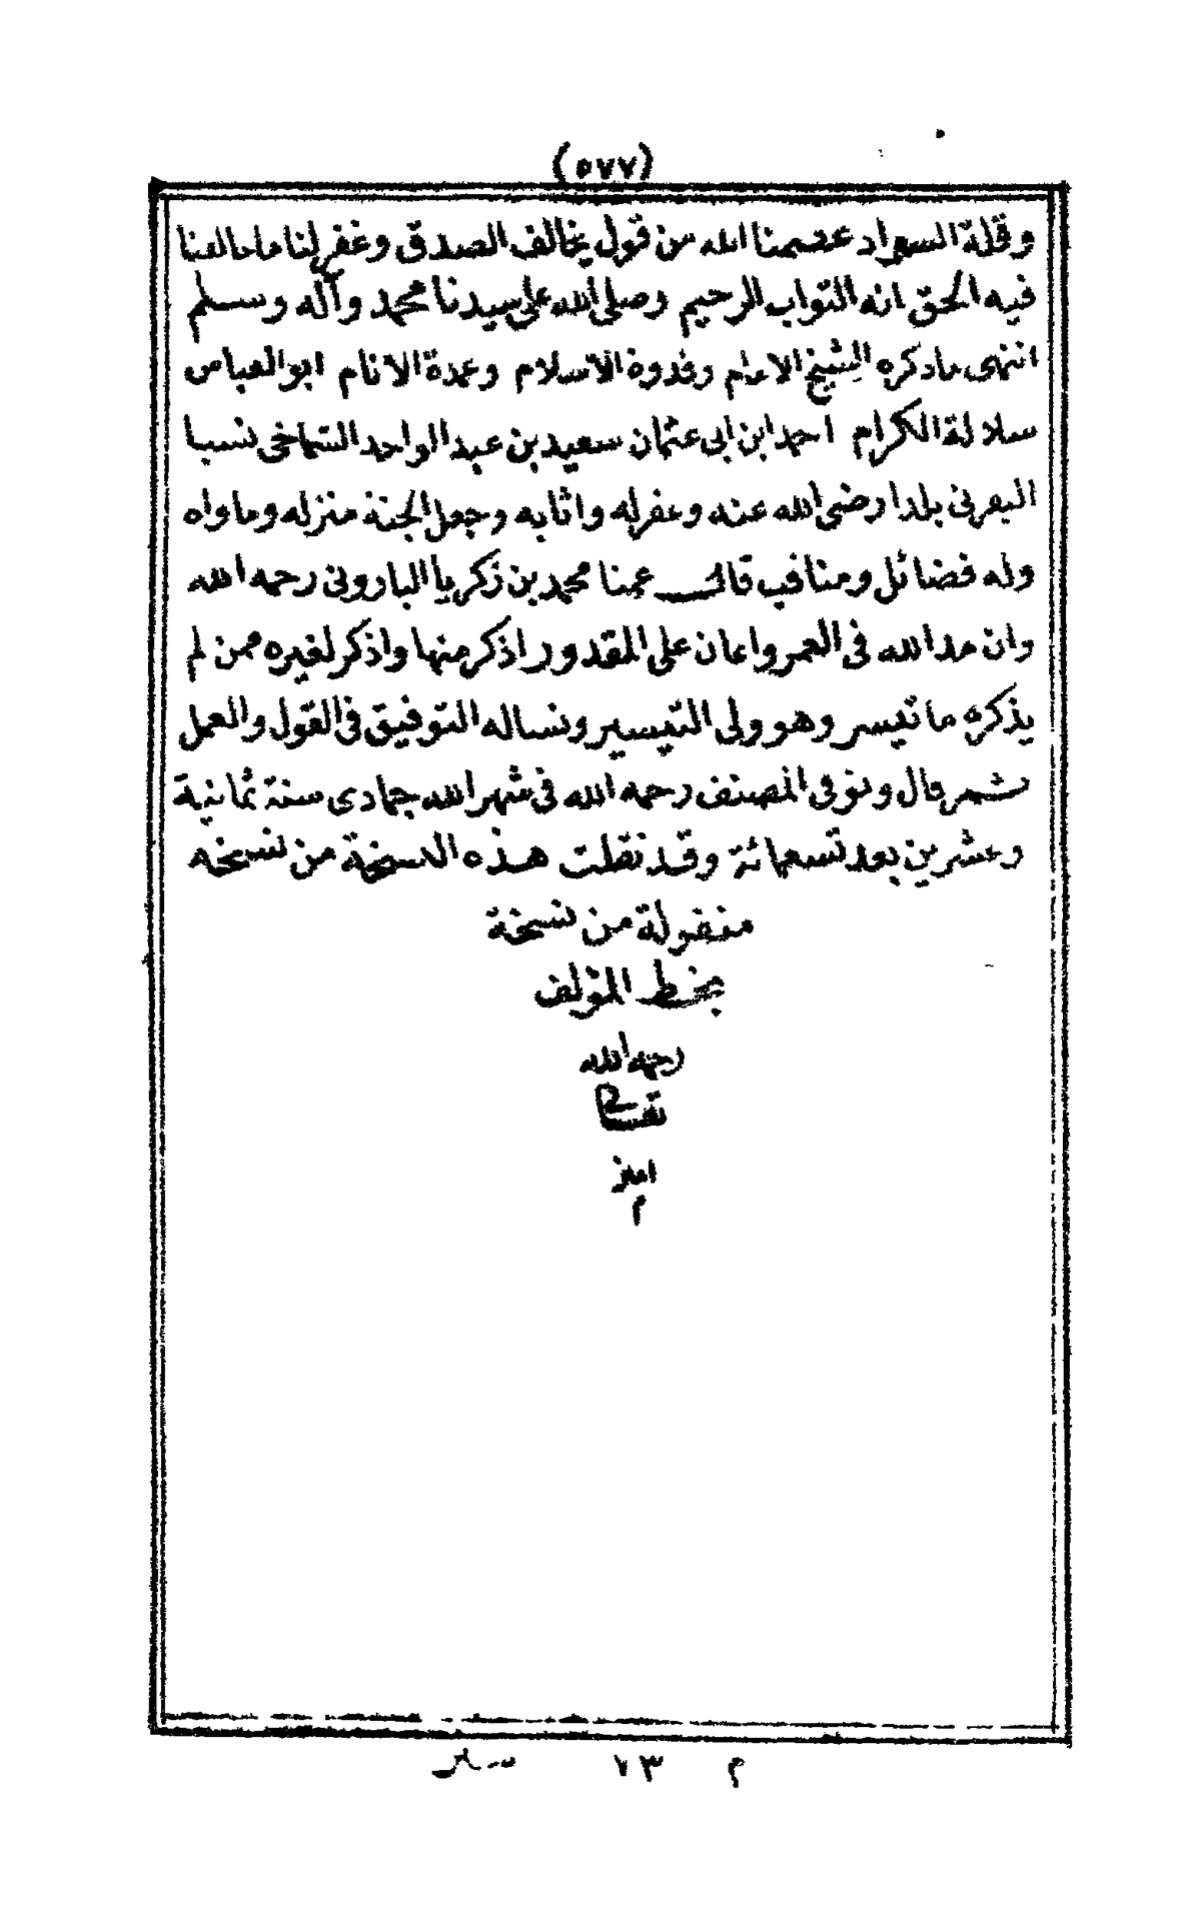 (٥٧٧)
وقلة السعراد عصمنا الله من قول يخالف الصدق وغفر لنا ما خالفنا
فيه الحق انه التواب الرحيم وصلى الله على سيدنا محمد وآله وسلم
انتهى ما ذكره الشيخ الامام وقدوة الاسلام وعمدة الانام ابو العباس
سلالة الكرام احمد ابن ابى عثمان سعيد بن عبد الواحد الشماخى نسبا
اليفرنى بلدا رضى الله عنه وغفر له واثابه وجعل الجنة منزله وماواه
وله فضائل ومناقب قال عمنا محمد بن زكريا البارونى رحمه الله
وان مد الله فى العمر واعان على المقدور اذكر منها واذكر لغيره ممن لم
يذكره ما تيسر وهو ولى التيسير ونساله التوفيق فى القول والعمل
ثم قال وتوفى المصنف رحمه الله فى شهر الله جمادى سنة ثمانية
وعشرين بعد تسعمائة وقد نقلت هذه النسخة من نسخه
منقولة من نسخة
بخط المؤلف
رحمه الله
تعالى
امين
م
م ٧٣ سير